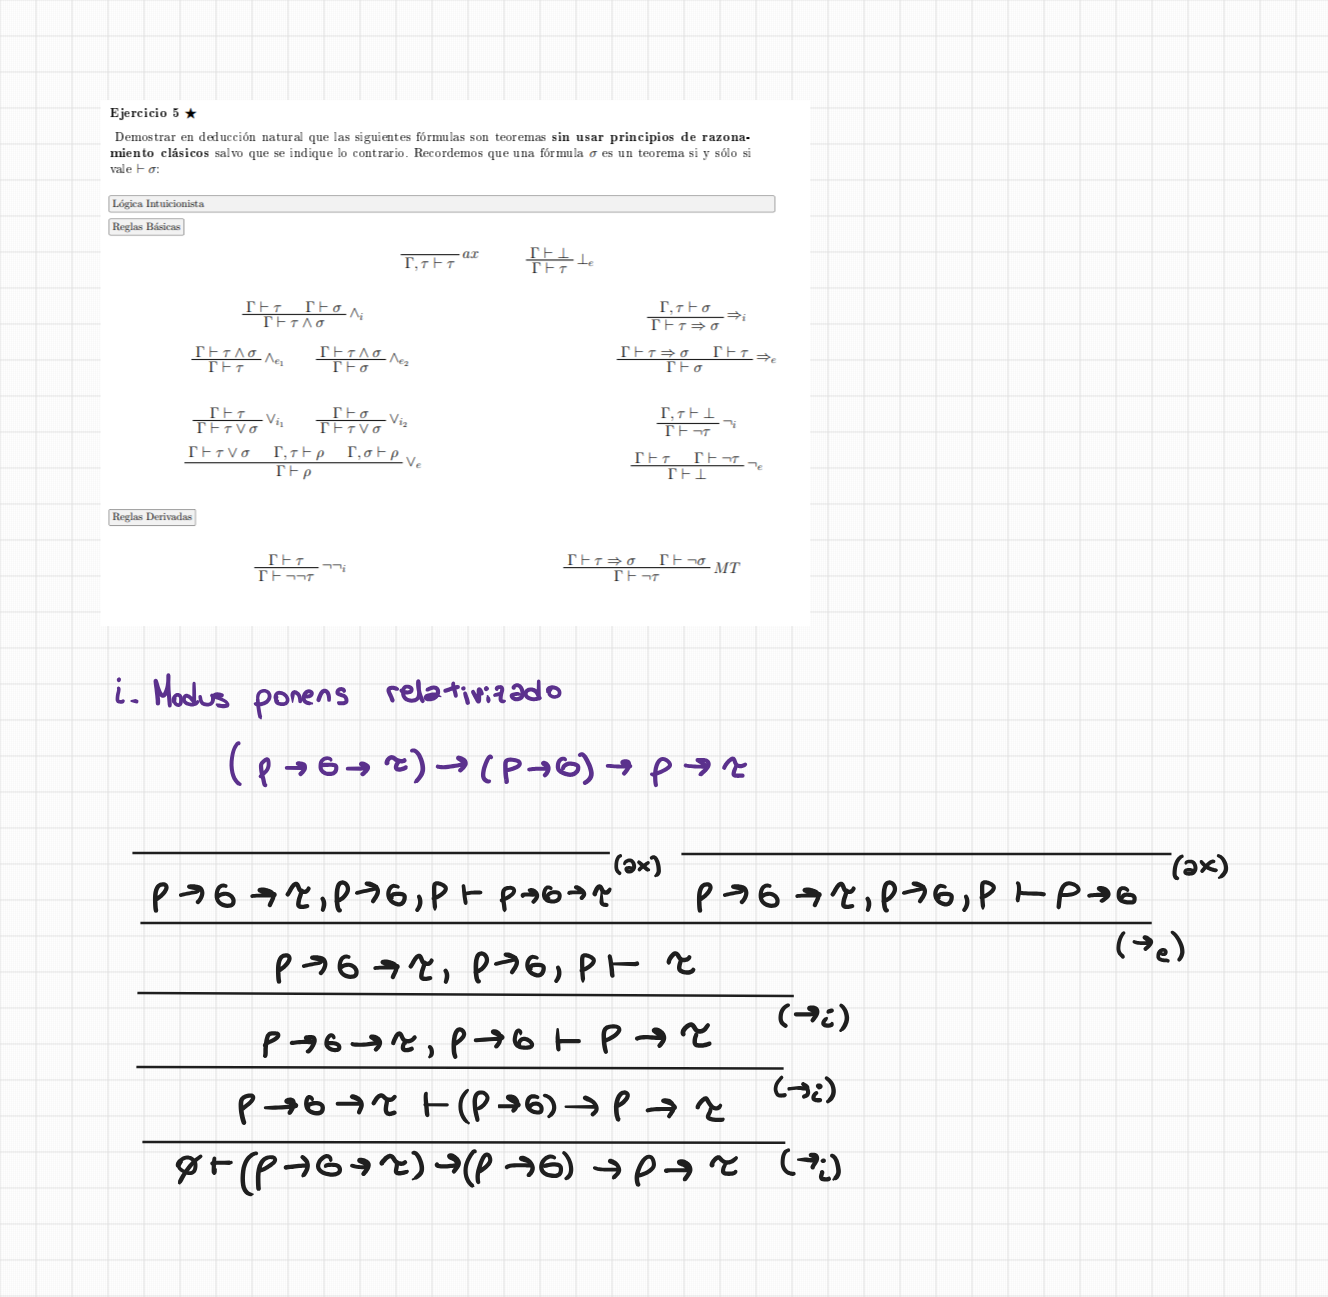 Ejercicio 5 ★
Demostrar en deducción natural que las siguientes fórmulas son teoremas sin usar principios de razona-
miento clásicos salvo que se indique lo contrario. Recordemos que una fórmula σ es un teorema si y sólo si
vale ⊢ σ:
Lógica Intuicionista
Reglas Básicas
Γ, τ ⊢ τ ax
Γ ⊢ ⊥
Γ ⊢ τ ⊥e
Γ ⊢ τ Γ ⊢ σ
Γ ⊢ τ ∧ σ ∧i
Γ, τ ⊢ σ
Γ ⊢ τ ⇒ σ ⇒i
Γ ⊢ τ ∧ σ
Γ ⊢ τ ∧e1
Γ ⊢ τ ∧ σ
Γ ⊢ σ ∧e2
Γ ⊢ τ ⇒ σ Γ ⊢ τ
Γ ⊢ σ ⇒e
Γ ⊢ τ
Γ ⊢ τ ∨ σ ∨i1
Γ ⊢ σ
Γ ⊢ τ ∨ σ ∨i2
Γ, τ ⊢ ⊥
Γ ⊢ ¬τ ¬i
Γ ⊢ τ ∨ σ Γ, τ ⊢ ρ Γ, σ ⊢ ρ
Γ ⊢ ρ ∨e
Γ ⊢ τ Γ ⊢ ¬τ
Γ ⊢ ⊥ ¬e
Reglas Derivadas
Γ ⊢ τ
Γ ⊢ ¬¬τ ¬¬i
Γ ⊢ τ ⇒ σ Γ ⊢ ¬σ
Γ ⊢ ¬τ MT
i. Modus ponens relativizado
(ρ → σ → τ) → (ρ → σ) → ρ → τ
(ax) (ax)
ρ → σ → τ, ρ → σ, ρ ⊢ ρ → σ → τ ρ → σ → τ, ρ → σ, ρ ⊢ ρ → σ
(→e)
ρ → σ → τ, ρ → σ, ρ ⊢ τ
(→i)
ρ → σ → τ, ρ → σ ⊢ ρ → τ
(→i)
ρ → σ → τ ⊢ (ρ → σ) → ρ → τ
∅ ⊢ (ρ → σ → τ) → (ρ → σ) → ρ → τ (→i)